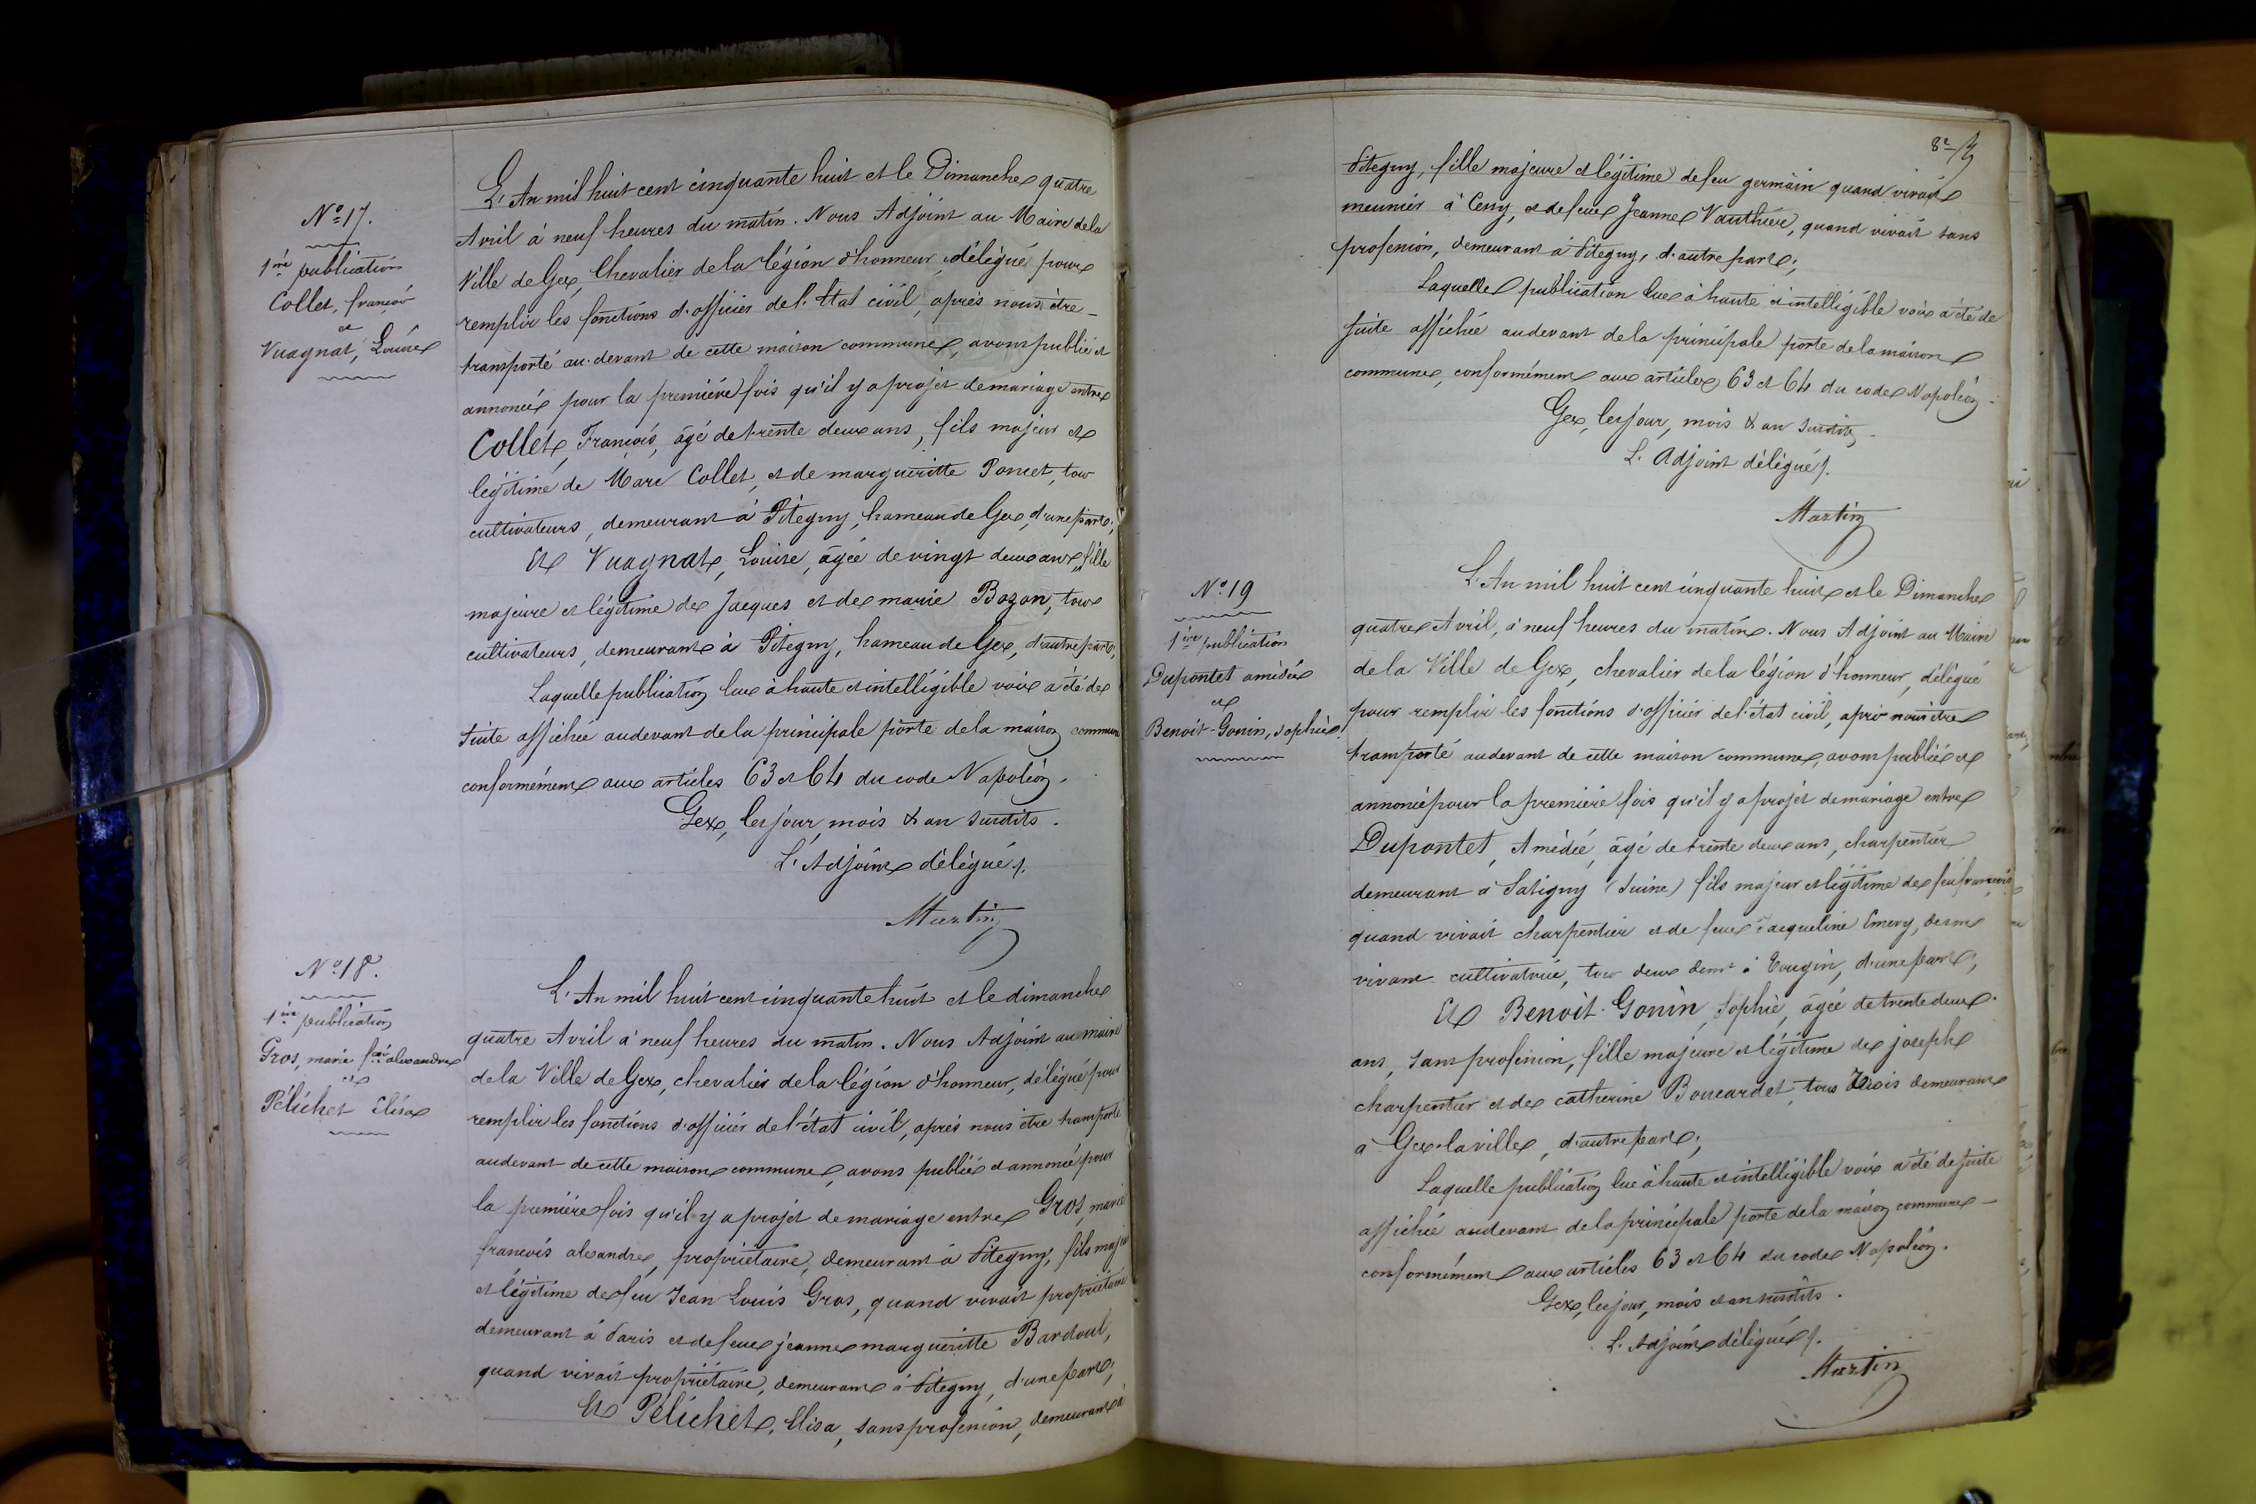 Nº 17.
1ère publication
Collet, françois
et
Vuagnat, Louise
L'An mil huit cent cinquante huit et le Dimanche quatre
Avril à neuf heures du matin. Nous Adjoint au Maire de la
Ville de Gex, Chevalier de la légion d'honneur, délégué pour
remplir les fonctions d'officier de l'Etat civil, après nous être
transporté au devant de cette maison commune, avons publié et
annoncé pour la première fois qu'il y a projet de mariage entre
Collet, François, âgé de trente deux ans, fils majeur et
légitime de Marc Collet, et de margueritte Poncet, tous
cultivateurs, demeurant à Pitegny, hameau de Gex, d'une part;
Et Vuagnat, Louise, âgée de vingt deux ans, fille
majeure et légitime de Jacques et de marie Bozon, tous
cultivateurs, demeurant à Pitegny, hameau de Gex, d'autre part;
Laquelle publication lue à haute et intelligible voix a été de
suite affichée au devant de la principale porte de la maison commune
conformément aux articles 63 et 64 du code Napoléon.
Gex, les jour, mois & an susdits.
L'Adjoint délégué /.
Martin
Nº 18.
1ère publication
Gros, marie fçois alexandre
et
Pélichet Elisa
L'An mil huit cent cinquante huit et le dimanche
quatre Avril à neuf heures du matin. Nous Adjoint au maire
de la Ville de Gex, chevalier de la légion d'honneur, délégué pour
remplir les fonctions d'officier de l'état civil, après nous être transporté
au devant de cette maison commune, avons publié et annoncé pour
la première fois qu'il y a projet de mariage entre Gros, marie
francois alexandre, propriétaire, demeurant à Pitegny, fils majeur
et légitime de feu Jean Louis Gros, quand vivait propriétaire
demeurant à Paris et de feue jeanne margueritte Bardoul,
quand vivait propriétaire, demeurant à Pitegny, d'une part;
Et Pélichet, Elisa, sans profession, demeurant à
8e
Pitegny, fille majeure et légitime de feu germain quand vivait
meunier à Cessy, et de feue Jeanne Vauthier, quand vivait sans
profession, demeurant à Pitegny, d'autre part;
Laquelle publication lue à haute et intelligible voix a été de
suite affichée au devant de la principale porte de la maison
commune, conformément aux articles 63 et 64 du code Napoléon.
Gex, les jour, mois & an susdits.
L'Adjoint délégué /.
Martin
Nº 19
1ère publication
Dupontet amédée
et
Benoit-Gonin, sophie
L'An mil huit cent cinquante huit et le Dimanche
quatre Avril, à neuf heures du matin. Nous Adjoint au Maire
de la Ville de Gex, chevalier de la légion d'honneur, délégué
pour remplir les fonctions d'officier de l'état civil, après nous être
transporté au devant de cette maison commune, avons publié et
annoncé pour la première fois qu'il y a projet de mariage entre
Dupontet, Amédée, âgé de trente deux ans, charpentier
demeurant à Satigny (Suisse) fils majeur et légitime de feu françois
quand vivait charpentier et de feue Jacqueline Emery, de son
vivant cultivatrice, tous deux demt à Tougin, d'une part;
Et Benoit-Gonin, Sophie, âgée de trente deux
ans, sans profession, fille majeure et légitime de joseph
charpentier et de catherine Boucardet, tous trois demeurant
à Gex-la-ville, d'autre part;
Laquelle publication lue à haute et intelligible voix a été de suite
affichée au devant de la principale porte de la maison commune
conformément aux articles 63 et 64 du code Napoléon.
Gex, les jour, mois et an susdits.
L'Adjoint délégué /.
Martin